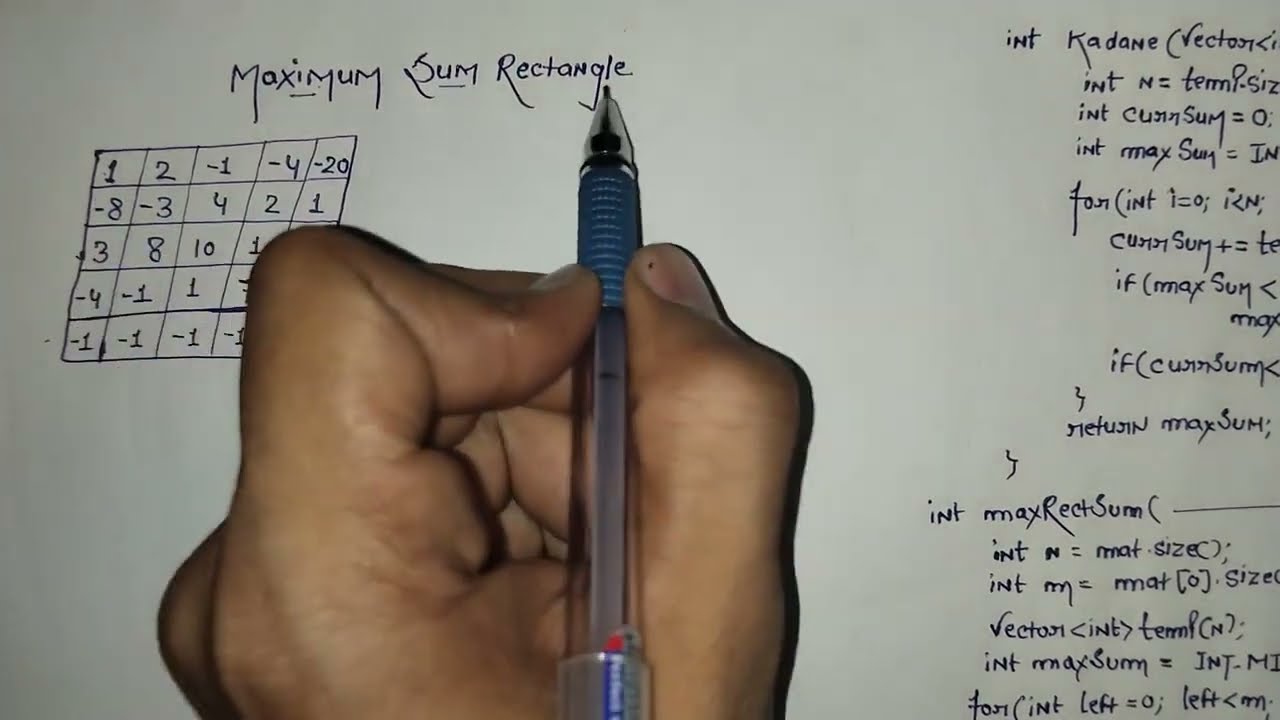 Maximum Sum Rectangle
1 2 -1 -4 -20
-8 -3 4 2 1
3 8 10 1
-4 -1 1
-1 -1 -1 -1
int Kadane(vector<i
int n = temp.siz
int currSum = 0;
int maxSum = IN
for(int i=0; i<n;
currSum += te
if(maxSum <
max
if(currSum<
}
return maxSum;
}
int maxRectSum(
int n = mat.size();
int m = mat[0].size(
vector<int> temp(n);
int maxSum = INT-MI
for(int left=0; left<m;